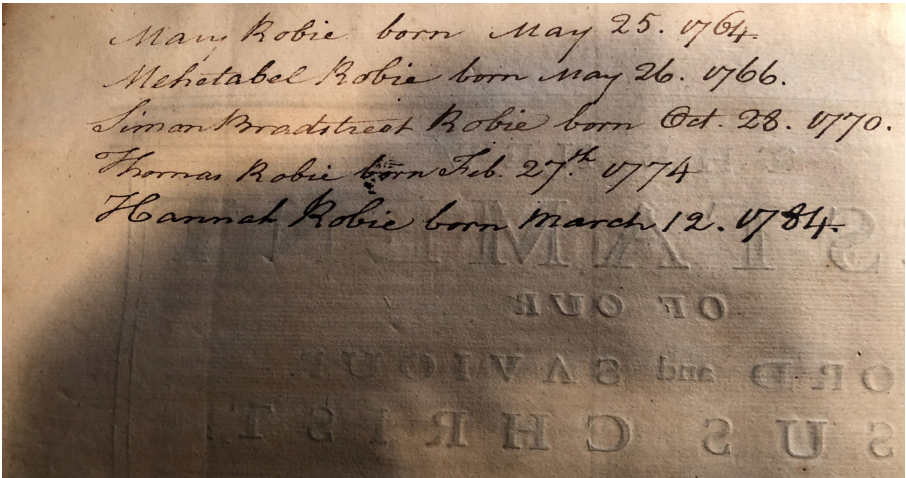 Mary Robie born May 25. 1764.
Mehetabel Robie born May 26. 1766.
Simon Bradstreet Robie born Oct. 28. 1770.
Thomas Robie born Feb. 27.th 1774
Hannah Robie born March 12. 1784.
STAMEN
OF OUR
ORD and SAVIOUR
SUS CHRIST